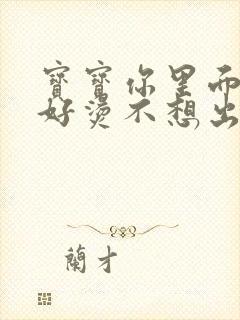 寶寶你里面
好燙不想出
蘭才